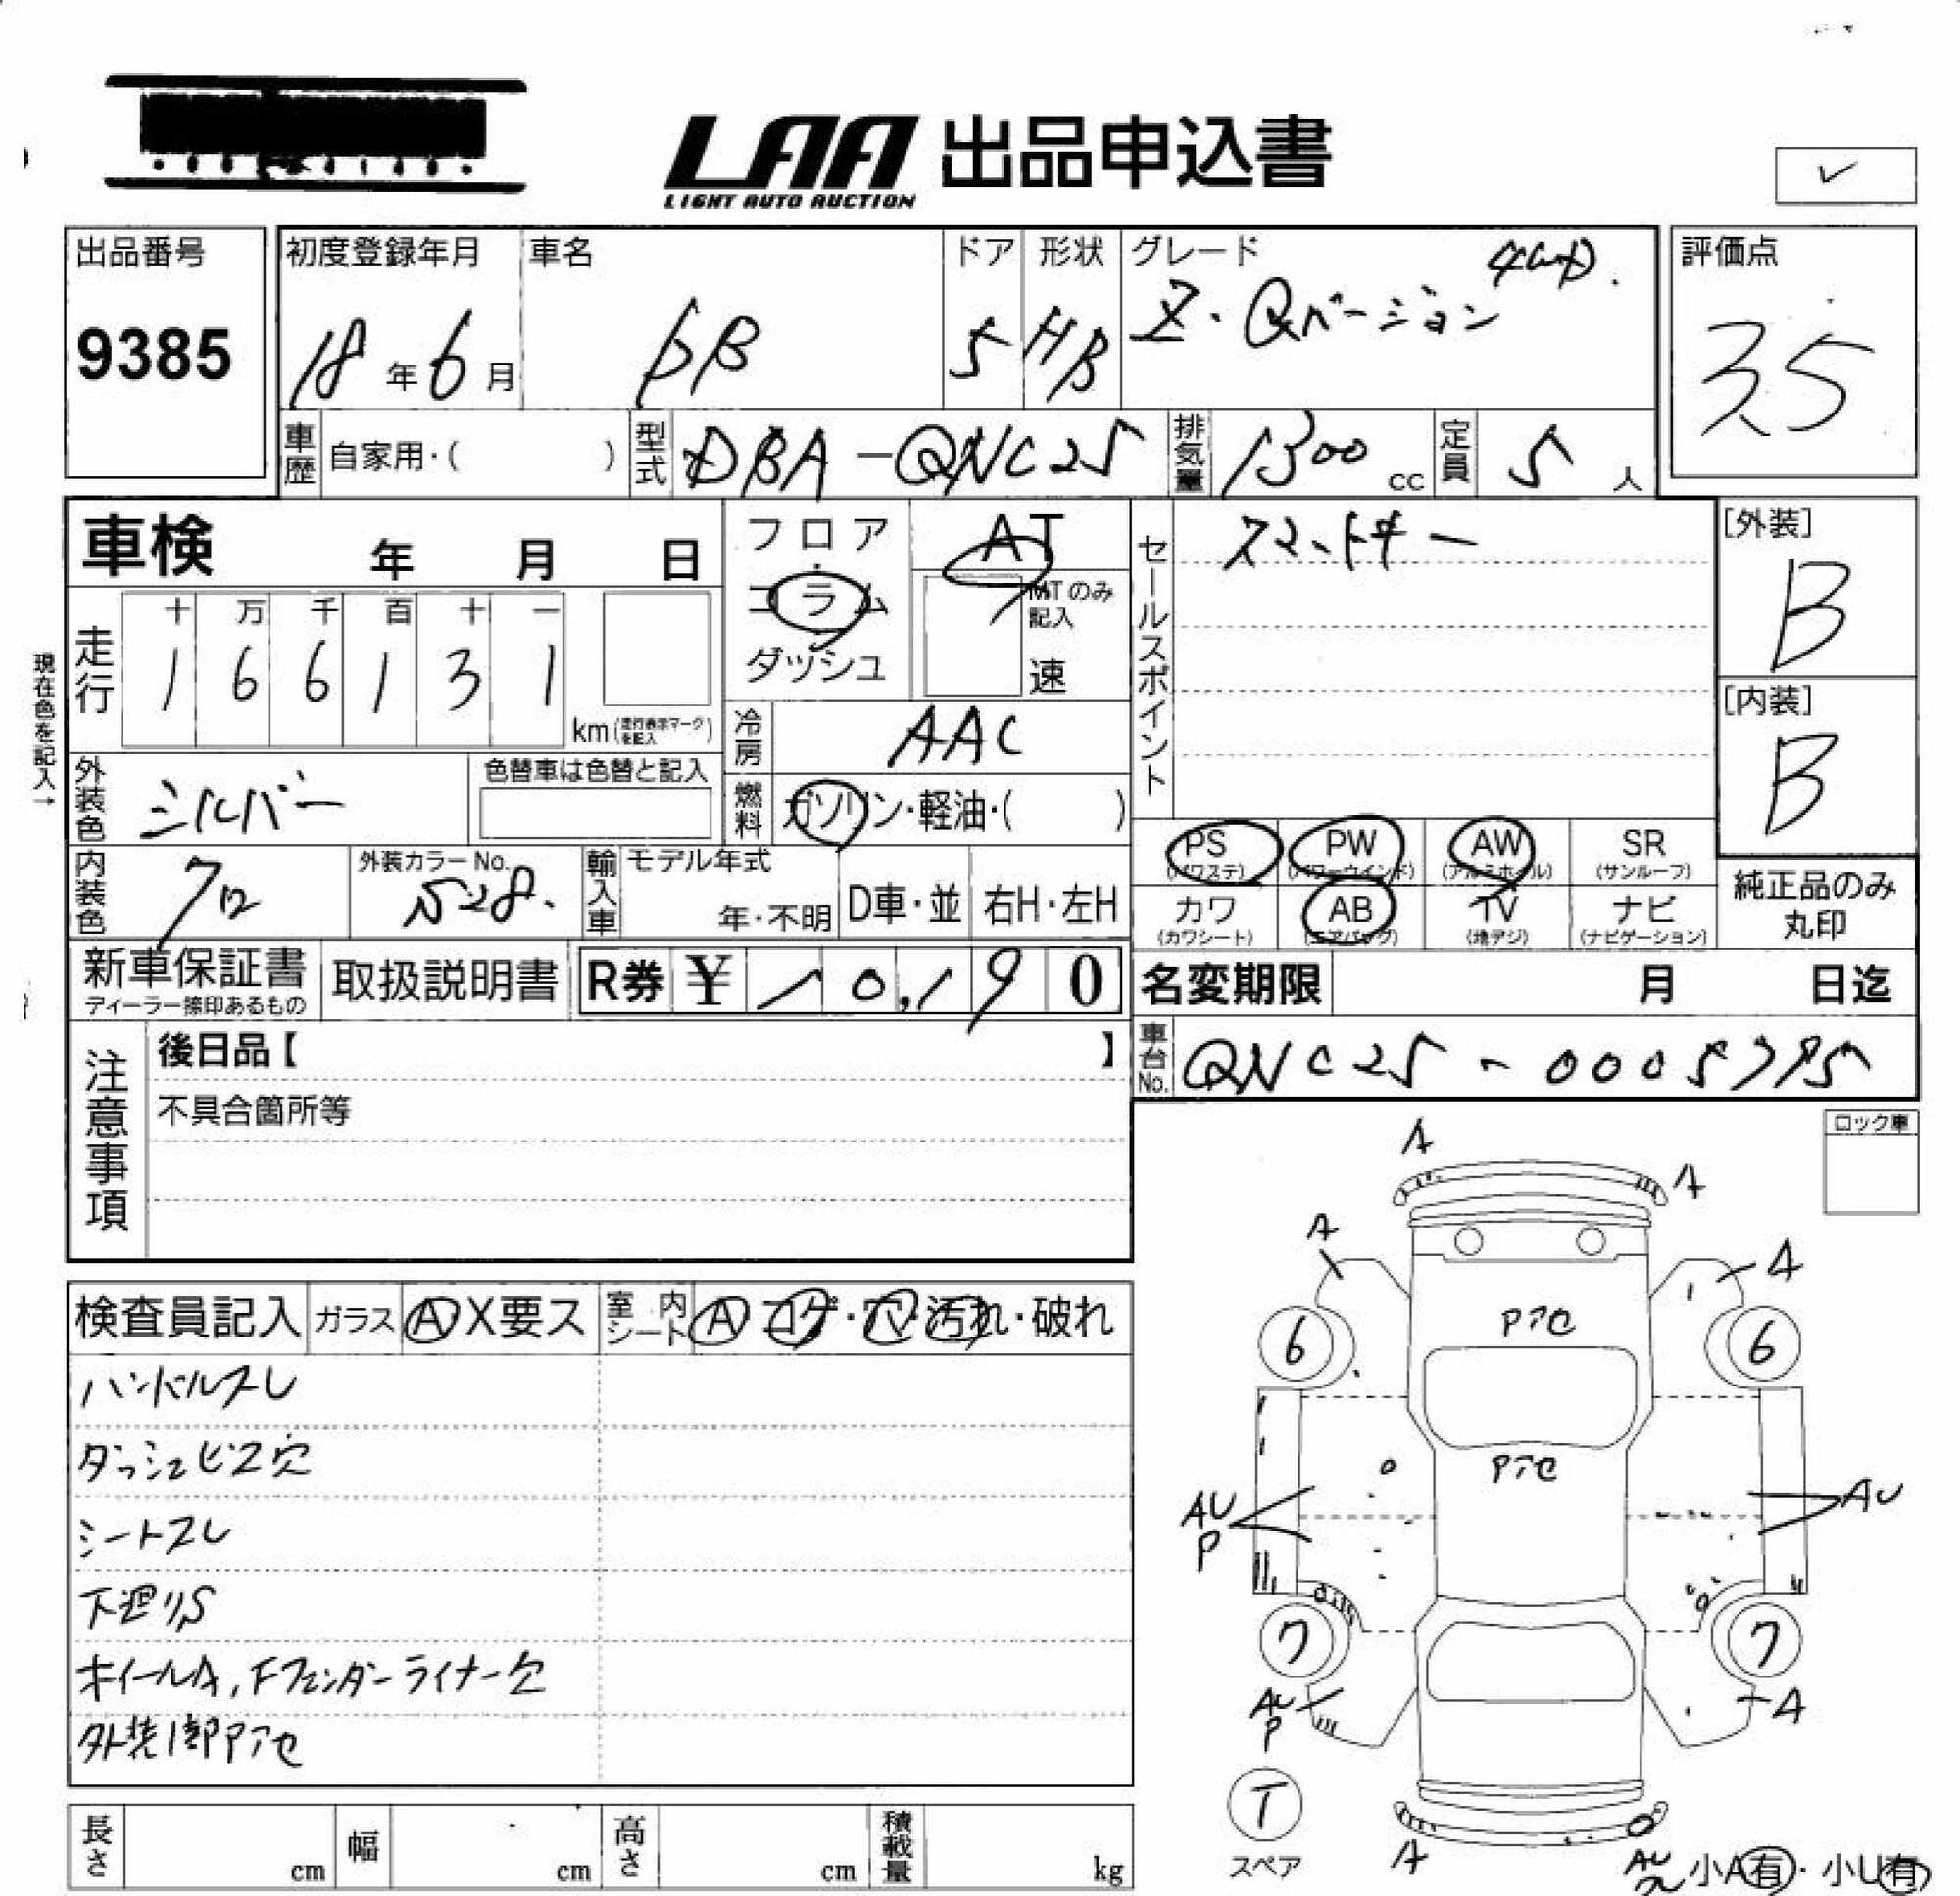 LAA 出品申込書
LIGHT AUTO AUCTION
出品番号
9385
初度登録年月
18年6月
車名
bB
ドア
5
形状
H/B
グレード
4WD.
Z・Qバージョン
評価点
3.5
車歴 自家用・( )
型式 DBA-QNC25
排気量 1300 cc
定員 5 人
車検 年 月 日
走行
十 万 千 百 十 一
1 6 6 1 3 1
km (走行表示マークを記入)
現在色を記入→
フロア
コラム
ダッシュ
AT
MTのみ記入
速
冷房 AAC
燃料 ガソリン・軽油・( )
セールスポイント
スマートキー
[外装]
B
[内装]
B
外装色 シルバー
色替車は色替と記入
内装色 クロ
外装カラーNo.
S28.
輸入車
モデル年式
年・不明
D車・並
右H・左H
PS
(パワステ)
PW
(パワーウインド)
AW
(アルミホイル)
SR
(サンルーフ)
カワ
(カワシート)
AB
(エアバッグ)
TV
(地デジ)
ナビ
(ナビゲーション)
純正品のみ
丸印
新車保証書
ディーラー捺印あるもの
取扱説明書
R券 ¥ 10,190
名変期限 月 日迄
車台No. QNC25-0005775
注意事項
後日品【 】
不具合箇所等
ロック車
検査員記入
ガラス A X要ス
室内シート A コゲ・穴・汚れ・破れ
ハンドルスレ
ダッシュビス穴
シートスレ
下廻りS
ホイールA, Fフェンダーライナー欠
外装1部Pアセ
A
A
A
A
Pアセ
6
6
Pアセ
AU
P
AU
7
7
AU
P
A
T
スペア
A
AU
小A有・小U有
長さ cm
幅 cm
高さ cm
積載量 kg